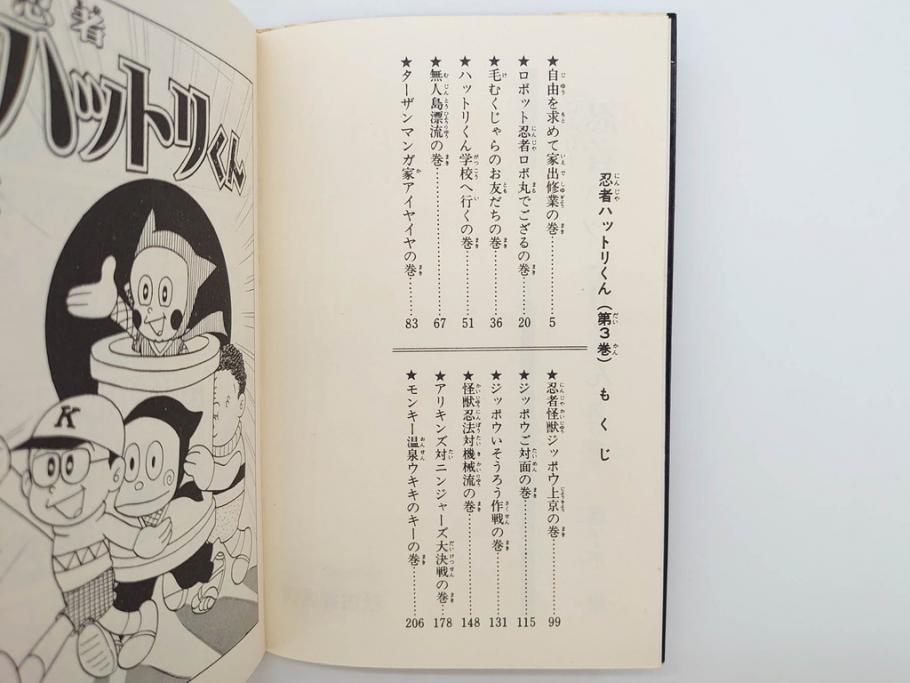 忍者
ハットリくん
K
忍者ハットリくん(第3巻) もくじ
★自由を求めて家出修業の巻…………5
★ロボット忍者ロボ丸でござるの巻…………20
★毛むくじゃらのお友だちの巻…………36
★ハットリくん学校へ行くの巻…………51
★無人島漂流の巻…………67
★ターザンマンガ家アイヤイヤの巻…………83
★忍者怪獣ジッポウ上京の巻…………99
★ジッポウご対面の巻…………115
★ジッポウいそうろう作戦の巻…………131
★怪獣忍法対機械流の巻…………148
★アリキンズ対ニンジャーズ大決戦の巻…………178
★モンキー温泉ウキキのキーの巻…………206